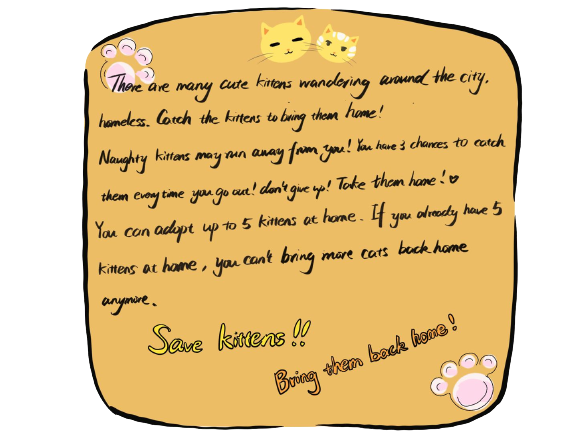 There are many cute kittens wandering around the city.
homeless. Catch the kittens to bring them home!
Naughty kittens may run away from you! You have 3 chances to catch
them every time you go out! don't give up! Take them home!♡
You can adopt up to 5 kittens at home. If you already have 5
kittens at home, you can't bring more cats back home
anymore.
Save kittens!!
Bring them back home!